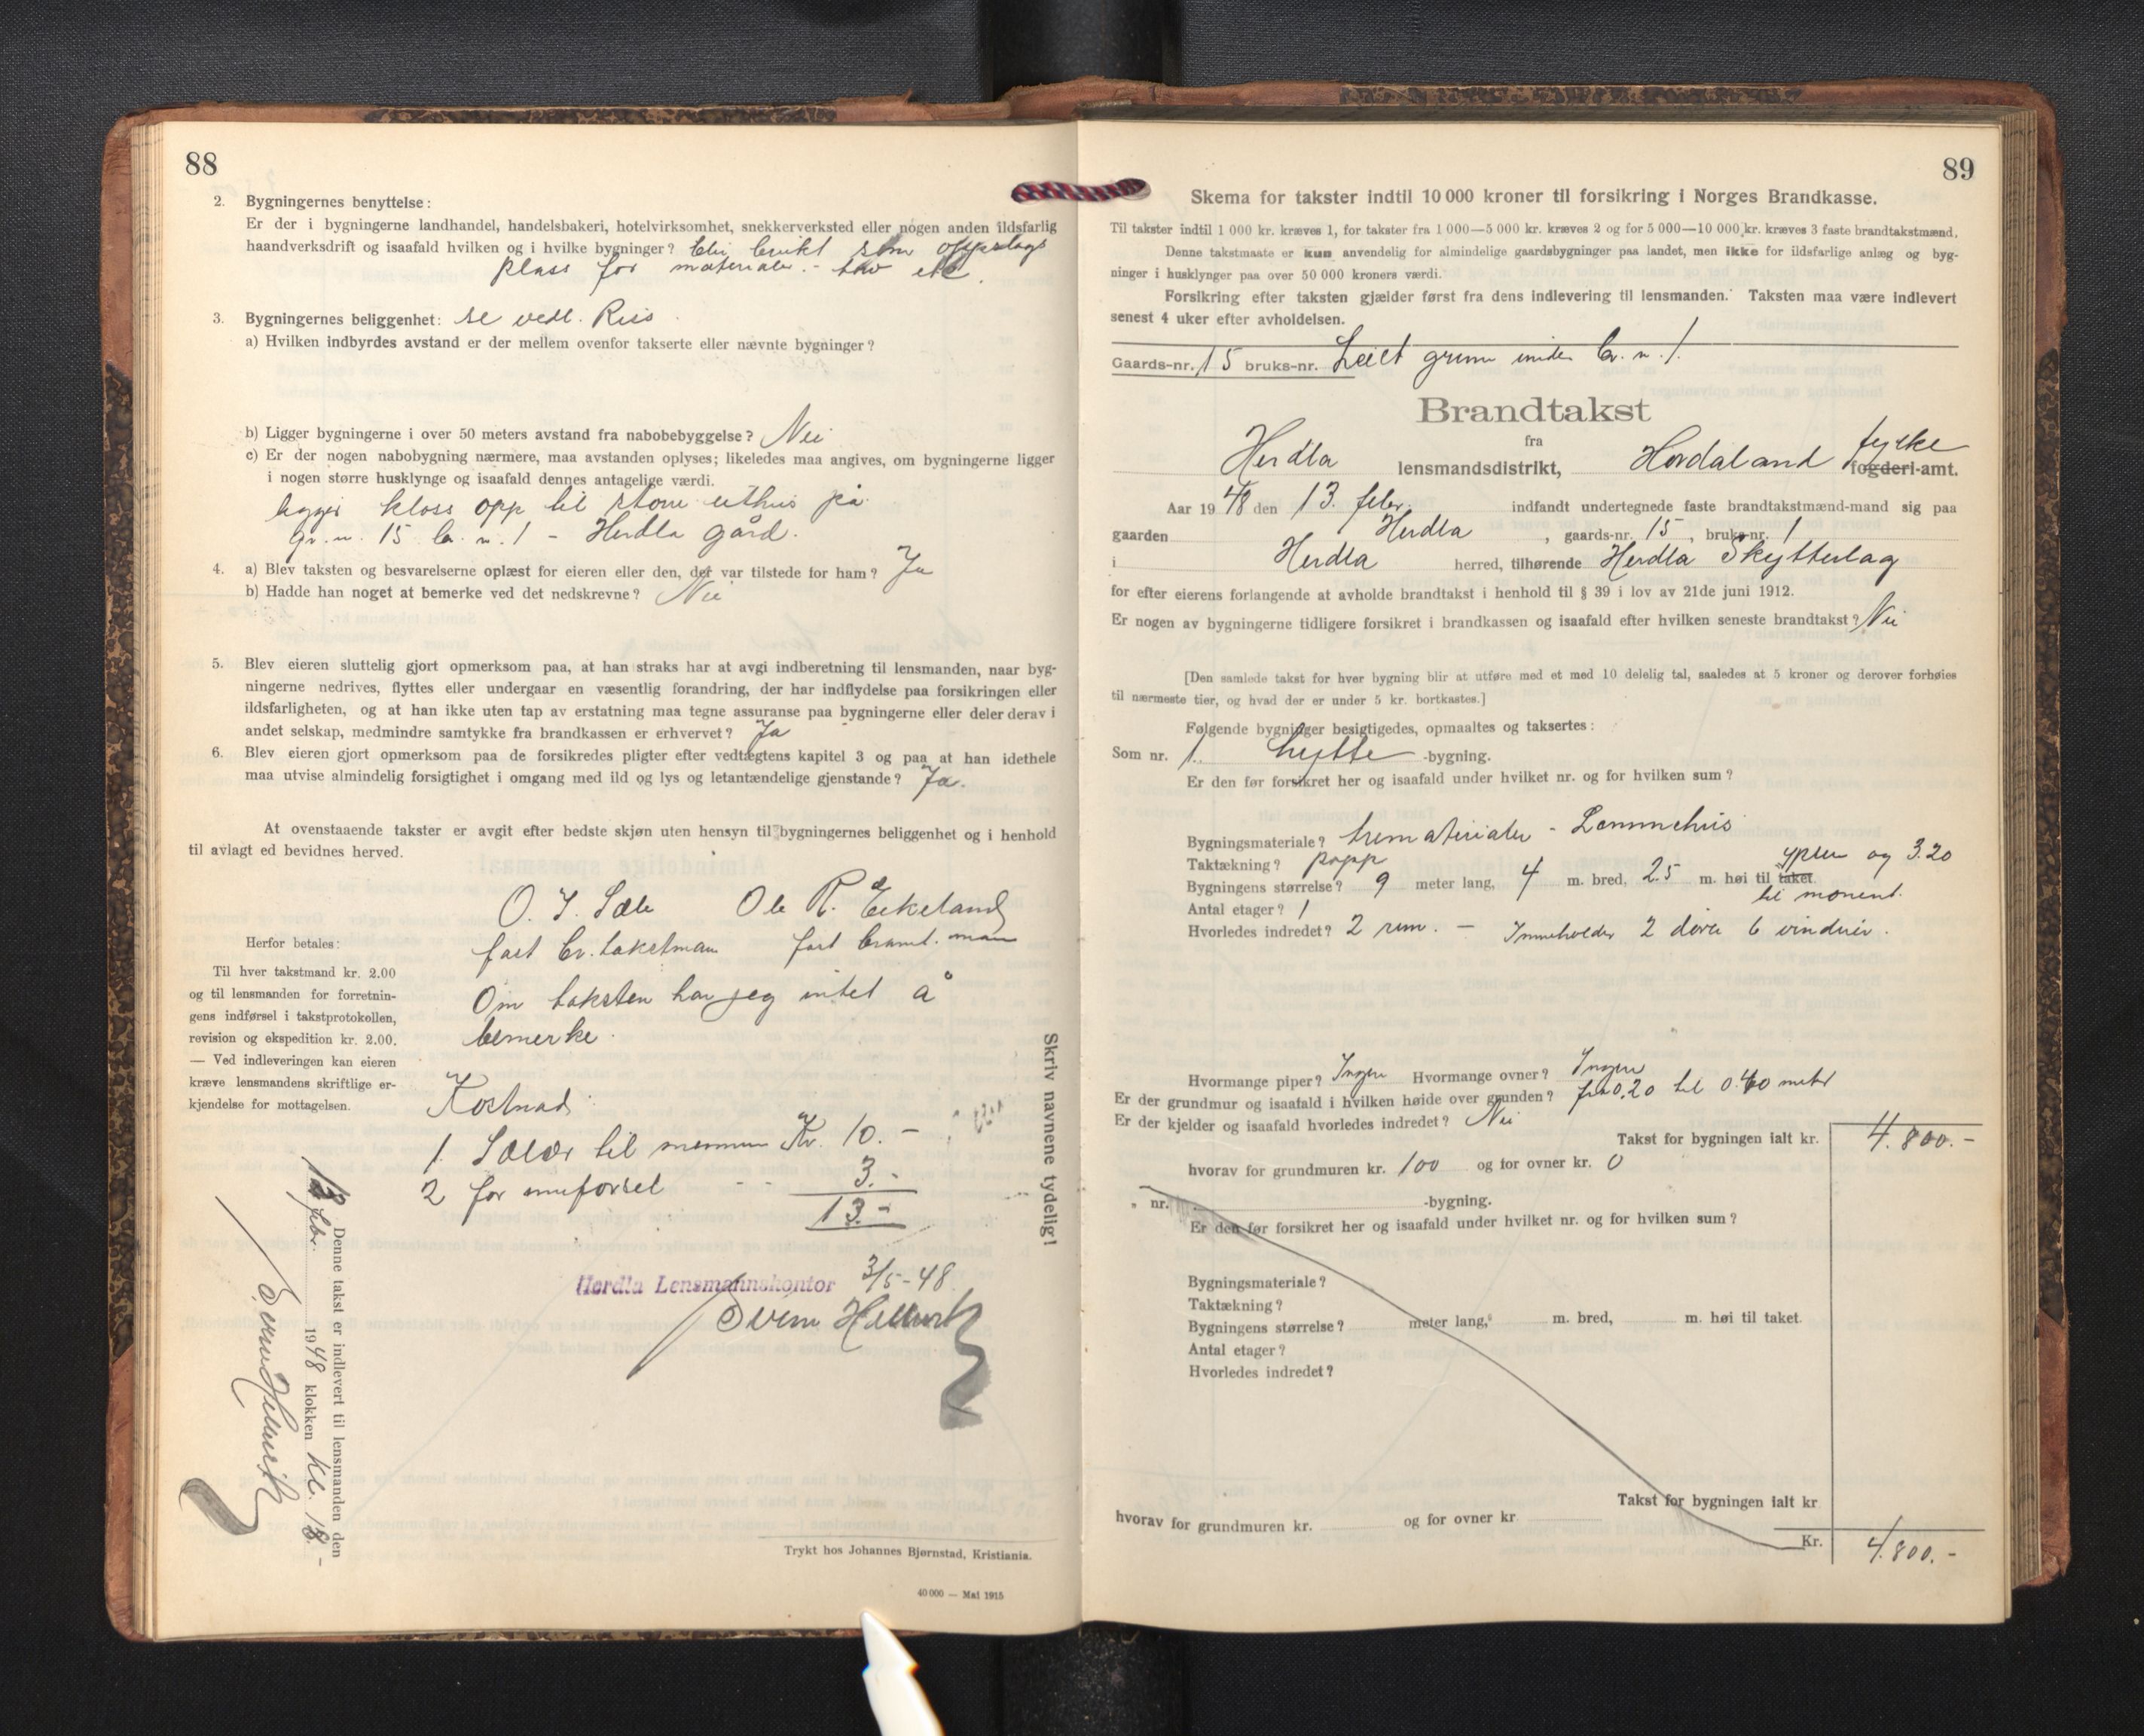 88
2. Bygningernes benyttelse:
Er der i bygningerne landhandel, handelsbakeri, hotelvirksomhet, snekkerverksted eller nogen anden ildsfarlig
haandverksdrift og isaafald hvilken og i hvilke bygninger? blir brukt som opplags
plass for materialer. - tau etc.
3. Bygningernes beliggenhet: se vedl. Riss.
a) Hvilken indbyrdes avstand er der mellem ovenfor takserte eller nævnte bygninger?
b) Ligger bygningerne i over 50 meters avstand fra nabobebyggelse? Nei
c) Er der nogen nabobygning nærmere, maa avstanden oplyses; likeledes maa angives, om bygningerne ligger
i nogen større husklynge og isaafald dennes antagelige værdi.
ligger kloss opp til store uthus på
gr. n. 15 br. n. 1 - Herdla gård.
4. a) Blev taksten og besvarelserne oplæst for eieren eller den, der var tilstede for ham? Ja
b) Hadde han noget at bemerke ved det nedskrevne? Nei
5. Blev eieren sluttelig gjort opmerksom paa, at han straks har at avgi indberetning til lensmanden, naar byg-
ningerne nedrives, flyttes eller undergaar en væsentlig forandring, der har indflydelse paa forsikringen eller
ildsfarligheten, og at han ikke uten tap av erstatning maa tegne assuranse paa bygningerne eller deler derav i
andet selskap, medmindre samtykke fra brandkassen er erhvervet? Ja
6. Blev eieren gjort opmerksom paa de forsikredes pligter efter vedtægtens kapitel 3 og paa at han idethele
maa utvise almindelig forsigtighet i omgang med ild og lys og letantændelige gjenstande? Ja.
At ovenstaaende takster er avgit efter bedste skjøn uten hensyn til bygningernes beliggenhet og i henhold
til avlagt ed bevidnes herved.
O. J. Sæle Ole R. Eikeland
fast br. takstman fast brannt. man
Om taksten har jeg intet å
bemerke.
Herfor betales:
Til hver takstmand kr. 2.00
og til lensmanden for forretnin-
gens indførsel i takstprotokollen,
revision og ekspedition kr. 2.00.
— Ved indleveringen kan eieren
kræve lensmandens skriftlige er-
kjendelse for mottagelsen.
Kostnad:
1. Salær til mennene Kr. 10. -
2 for innførsel - - 3. -
13. -
Skriv navnene tydelig!
Herdla Lensmannskontor 3/5-48
Denne takst er indlevert til lensmanden den
13 febr. 1948 klokken kl. 18. -
Trykt hos Johannes Bjørnstad, Kristiania.
40 000 — Mai 1915
89
Skema for takster indtil 10 000 kroner til forsikring i Norges Brandkasse.
Til takster indtil 1 000 kr. kræves 1, for takster fra 1 000—5 000 kr. kræves 2 og for 5 000—10 000 kr. kræves 3 faste brandtakstmænd.
Denne takstmaate er kun anvendelig for almindelige gaardsbygninger paa landet, men ikke for ildsfarlige anlæg og byg-
ninger i husklynger paa over 50 000 kroners værdi.
Forsikring efter taksten gjælder først fra dens indlevering til lensmanden. Taksten maa være indlevert
senest 4 uker efter avholdelsen.
Gaards-nr. 15 bruks-nr. Leiet grunn under br. n. 1.
Brandtakst
fra
Herdla lensmandsdistrikt, Hordaland fylke fogderi-amt.
Aar 1948 den 13. febr. indfandt undertegnede faste brandtakstmænd-mand sig paa
gaarden Herdla, gaards-nr. 15, bruks-nr. 1
i Herdla herred, tilhørende Herdla Skytterlag
for efter eierens forlangende at avholde brandtakst i henhold til § 39 i lov av 21de juni 1912.
Er nogen av bygningerne tidligere forsikret i brandkassen og isaafald efter hvilken seneste brandtakst? Nei
[Den samlede takst for hver bygning blir at utføre med et med 10 delelig tal, saaledes at 5 kroner og derover forhøies
til nærmeste tier, og hvad der er under 5 kr. bortkastes.]
Følgende bygninger besigtigedes, opmaaltes og taksertes:
Som nr. 1. hytte -bygning.
Er den før forsikret her og isaafald under hvilket nr. og for hvilken sum?
Bygningsmateriale? trematerialer - Lemmehus
Taktækning? papp
Bygningens størrelse? 9 meter lang, 4 m. bred, 2.5 m. høi til taket og 3.20
til mønent.
Antal etager? 1
Hvorledes indredet? 2 rum. - Inneholder 2 dører 6 vinduer.
Hvormange piper? Ingen Hvormange ovner? Ingen
Er der grundmur og isaafald i hvilken høide over grunden? fra 0,20 til 0.40 meter
Er der kjelder og isaafald hvorledes indredet? Nei
Takst for bygningen ialt kr. 4.800. -
hvorav for grundmuren kr. 100 og for ovner kr. 0
„ nr. -bygning.
Er den før forsikret her og isaafald under hvilket nr. og for hvilken sum?
Bygningsmateriale?
Taktækning?
Bygningens størrelse? meter lang, m. bred, m. høi til taket.
Antal etager?
Hvorledes indredet?
Takst for bygningen ialt kr
hvorav for grundmuren kr. og for ovner kr
Kr. 4.800. -